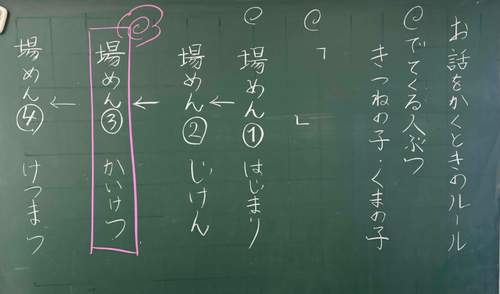 お話をかくときのルール
でてくる人ぶつ
きつねの子・くまの子
「 」
場めん① はじまり
場めん② じけん
場めん③ かいけつ
場めん④ けつまつ